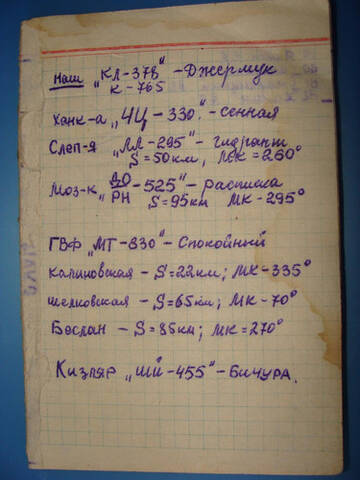 Наш „КЛ-378" - Джермук
К-765
Ханк-а „ЧЦ-330" - сенная
Слеп-я „ЛЛ-295" - гидрант
S=50км, МК=260°
Моз-к „ДО -525" - расписка
РН S=95км МК-295°
ГВФ „МТ-830" - Спокойный
Калиновская - S=22км; МК-335°
шелковская - S=65км; МК-70°
Беслан - S=85км; МК=270°
Кизляр „ШЙ-455" - Бичура.